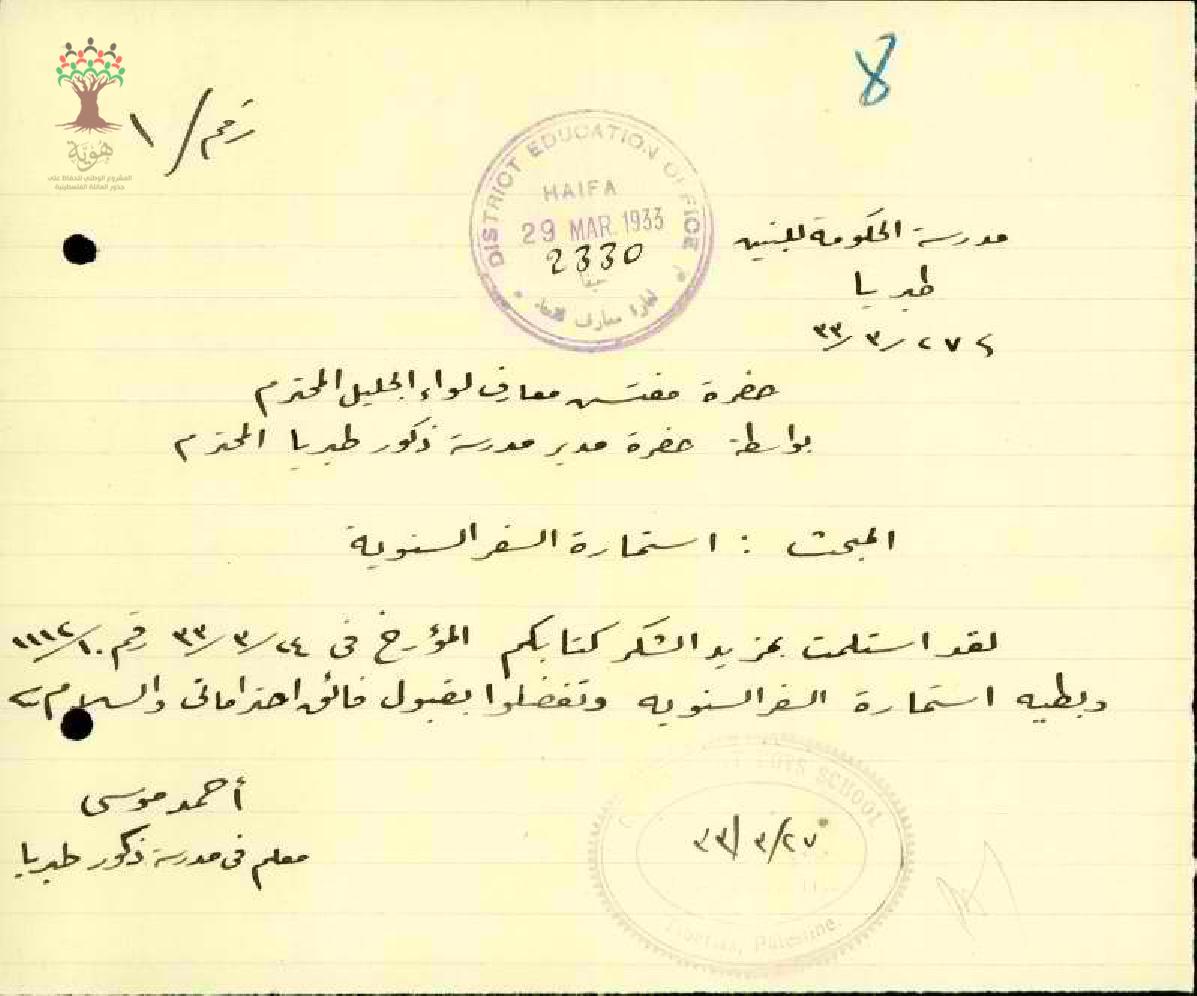 8
رقم / ١
هُوِيَّة
المشروع الوطني للحفاظ على
جذور العائلة الفلسطينية
DISTRICT EDUCATION OFFICE
HAIFA
29 MAR. 1933
2330
حيفا
ادارة معارف
مدرسة الحكومة للبنين
طبريا
٢٧/٣/٣٣
حضرة مفتش معارف لواء الجليل المحترم
بواسطة حضرة مدير مدرسة ذكور طبريا المحترم
المبحث : استمارة السفر السنوية
لقد استلمت بمزيد الشكر كتابكم المؤرخ في ٢٤/٣/٣٣ رقم
وبطيه استمارة السفر السنويه وتفضلوا بقبول فائق احتراماتي والسلام
أحمد موسى
معلم في مدرسة ذكور طبريا
BOYS SCHOOL
٢٧/٣/٣٣
Tiberias, Palestine.